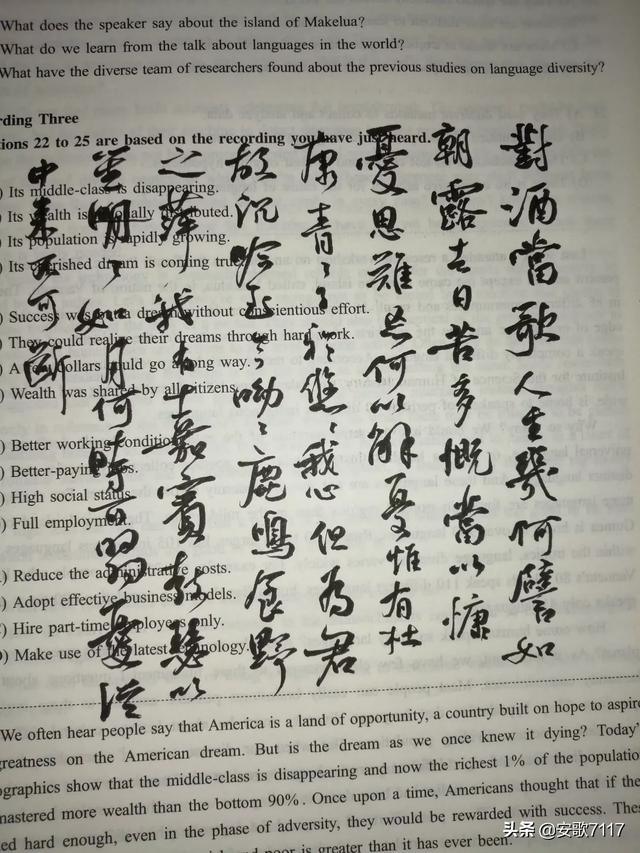 What does the speaker say about the island of Makelua?
What do we learn from the talk about languages in the world?
What have the diverse team of researchers found about the previous studies on language diversity?
rding Three
ions 22 to 25 are based on the recording you have just heard.
) Its middle-class is disappearing.
) Its wealth is equally distributed.
) Its population is rapidly growing.
) Its cherished dream is coming true.
) Success was but a dream without conscientious effort.
) They could realize their dreams through hard work.
) A few dollars could go a long way.
) Wealth was shared by all citizens.
) Better working conditions.
) Better-paying jobs.
) High social status.
) Full employment.
) Reduce the administrative costs.
) Adopt effective business models.
) Hire part-time employees only.
) Make use of the latest technology.
對酒當歌人生幾何譬如
朝露去日苦多慨當以慷
憂思難忘何以解憂惟有杜
康青々子衿悠々我心但為君
故沉吟至今呦々鹿鳴食野
之苹我有嘉賓鼓瑟吹
笙明々如月何時可掇憂從
中來不可斷
We often hear people say that America is a land of opportunity, a country built on hope to aspire
greatness on the American dream. But is the dream as we once knew it dying? Today'
ographics show that the middle-class is disappearing and now the richest 1% of the population
mastered more wealth than the bottom 90%. Once upon a time, Americans thought that if the
ed hard enough, even in the phase of adversity, they would be rewarded with success. Thes
poor is greater than it has ever been.
头条 @安歌7117